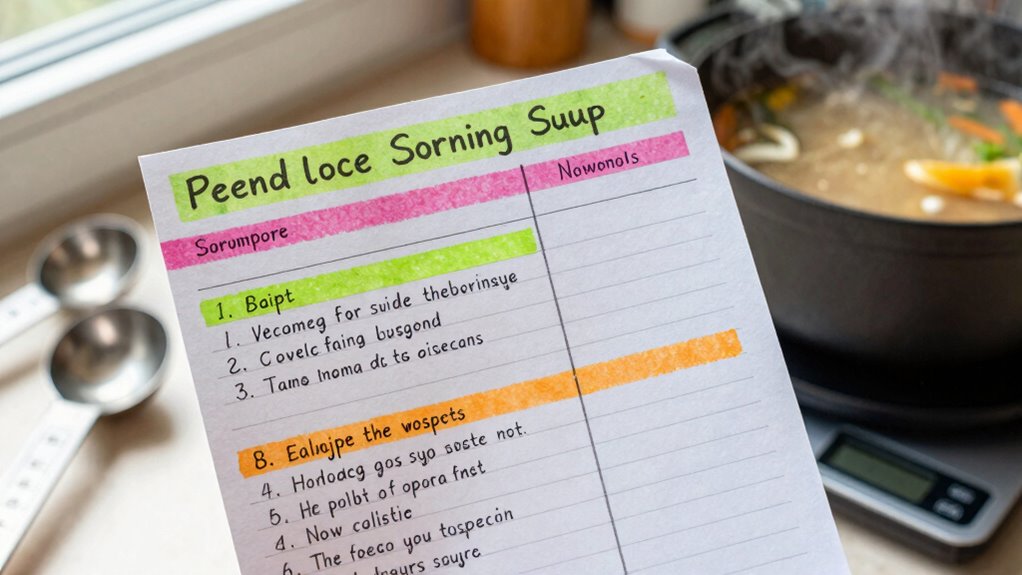 Peend loce Sorning Suup
Sorumpore
Nowonols
1. Baipt
1. Vecomeg for suide theborinsye
2. Covelc faing busgond
3. Tamo Inoma dc ts oisecans
8. Ealiojpe the wospcts
4. Hordoacg gos syo soste not.
5. He polbt of opora fnet
4. Now calistie
6. The foeco you tospecin